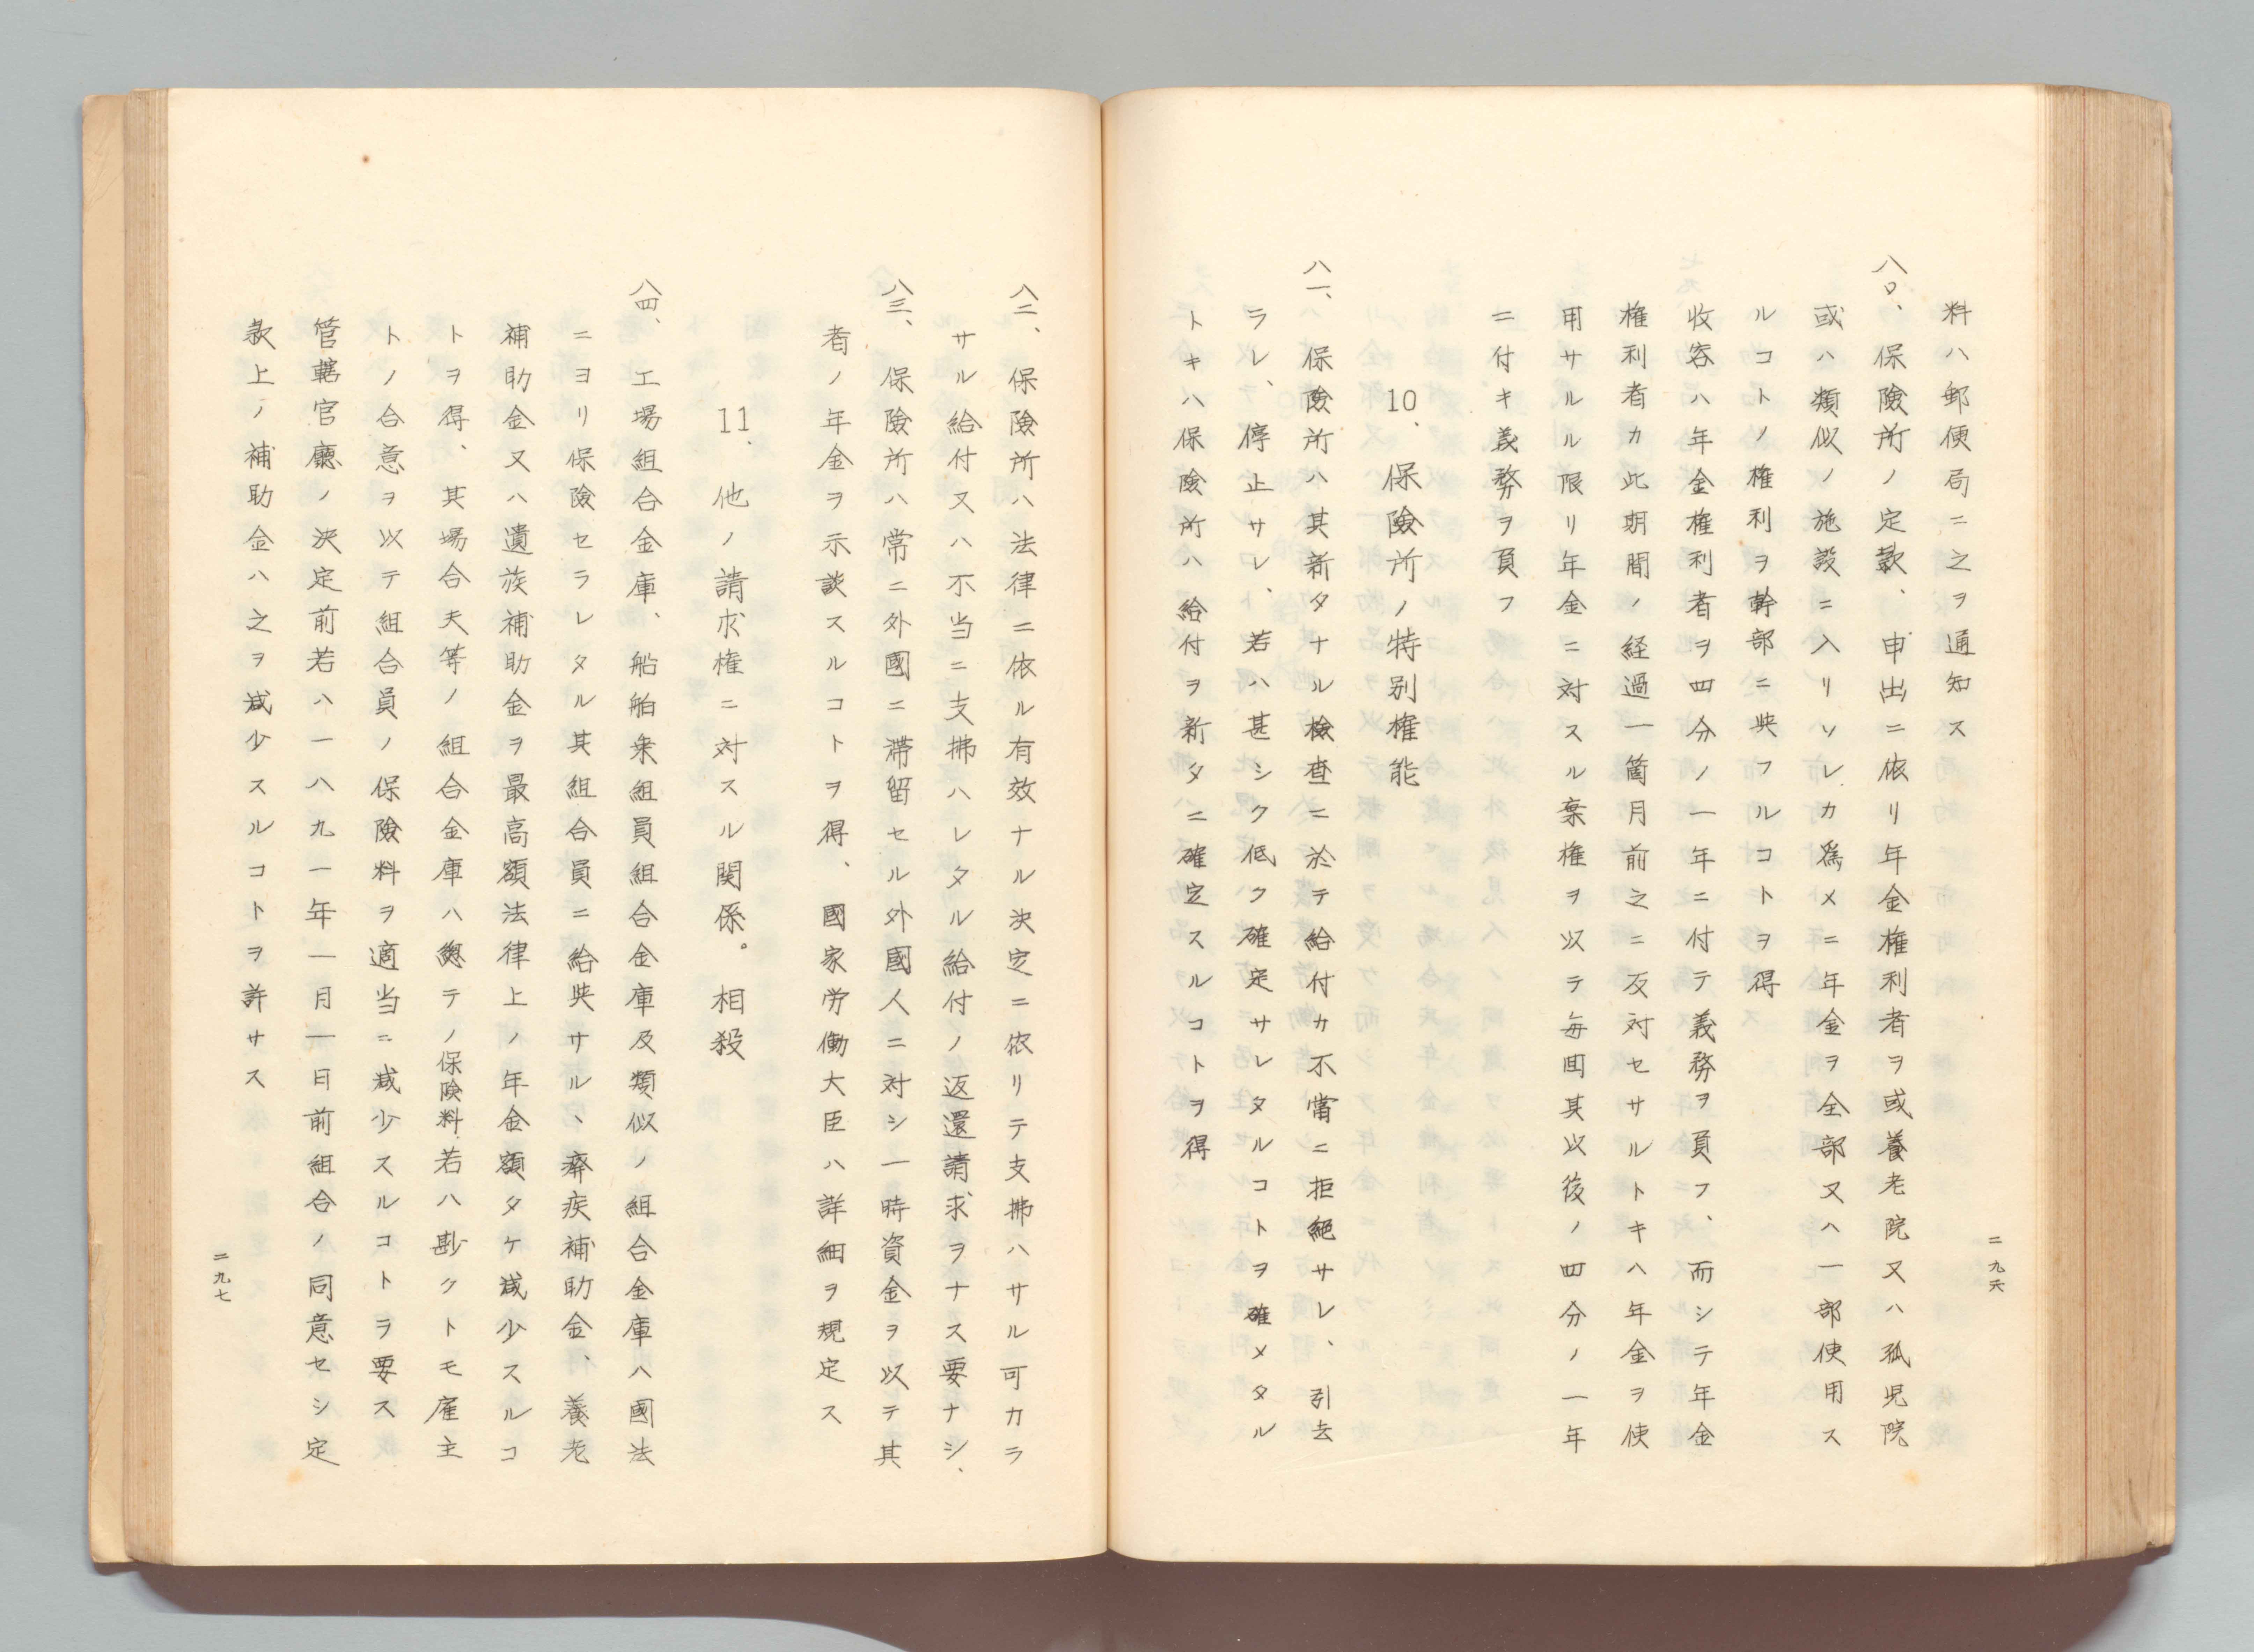 料ハ郵便局ニ之ヲ通知ス
八〇、保險所ノ定款、申出ニ依リ年金権利者ヲ或養老院又ハ孤児院
或ハ類似ノ施設ニ入リソレカ爲メニ年金ヲ全部又ハ一部使用ス
ルコトノ権利ヲ幹部ニ與フルコトヲ得
收容ハ年金権利者ヲ四分ノ一年ニ付テ義務ヲ負フ、而シテ年金
権利者カ此期間ノ経過一箇月前之ニ反対セサルトキハ年金ヲ使
用サルル限リ年金ニ対スル棄権ヲ以テ毎囬其以後ノ四分ノ一年
ニ付キ義務ヲ負フ
10、保險所ノ特別権能
八一、保險所ハ其新タナル検査ニ於テ給付カ不當ニ拒絕サレ、引去
ラレ、停止サレ、若ハ甚シク低ク確定サレタルコトヲ確メタル
トキハ保險所ハ給付ヲ新タニ確定スルコトヲ得
二九六
八二、保險所ハ法律ニ依ル有效ナル決定ニ依リテ支拂ハサル可カラ
サル給付又ハ不当ニ支拂ハレタル給付ノ返還請求ヲナス要ナシ、
八三、保險所ハ常ニ外國ニ滞留セル外國人ニ対シ一時資金ヲ以テ其
者ノ年金ヲ示談スルコトヲ得、國家労働大臣ハ詳細ヲ規定ス
11、他ノ請求権ニ対スル関係。相殺
八四、工場組合金庫、船舶乗組員組合金庫及類似ノ組合金庫ハ國法
ニヨリ保險セラレタル其組合員ニ給與サル、癈疾補助金、養老
補助金又ハ遺族補助金ヲ最高額法律上ノ年金額タケ減少スルコ
トヲ得、其場合夫等ノ組合金庫ハ總テノ保険料若ハ尠クトモ雇主
トノ合意ヲ以テ組合員ノ保險料ヲ適当ニ減少スルコトヲ要ス
管轄官廳ノ決定前若ハ一八九一年一月一日前組合ノ同意セシ定
款上ノ補助金ハ之ヲ減少スルコトヲ許サス
二九七